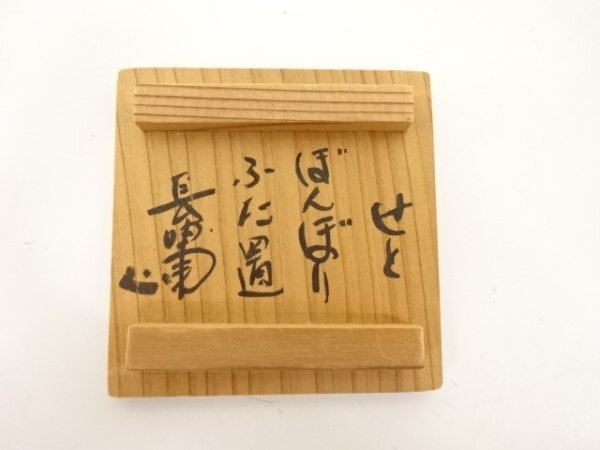 せと
ぼんぼり
ふた置
長